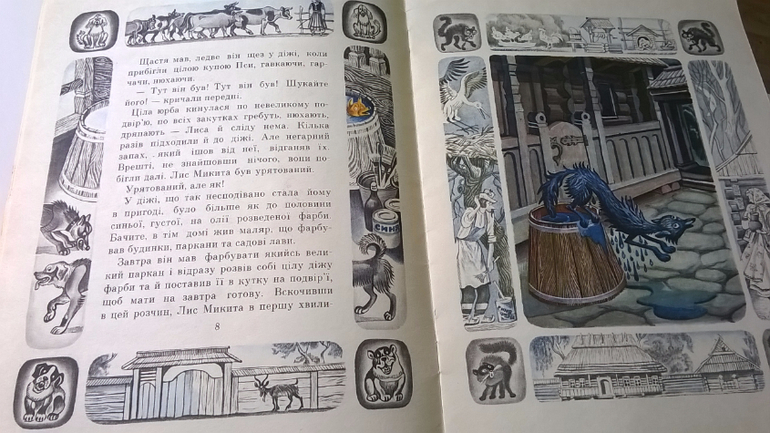 Щастя мав, ледве він щез у діжі, коли
прибігли цілою купою Пси, гавкаючи, гар-
чачи, нюхаючи.
— Тут він був! Тут він був! Шукайте
його! — кричали передні.
Ціла юрба кинулася по невеликому по-
двір'ю, по всіх закутках гребуть, нюхають,
дряпають — Лиса й сліду нема. Кілька
разів підходили й до діжі. Але негарний
запах, який ішов від неї, відганяв їх.
Врешті, не знайшовши нічого, вони по-
бігли далі. Лис Микита був урятований.
Урятований, але як!
У діжі, що так несподівано стала йому
в пригоді, було більше як до половини
синьої, густої, на олії розведеної фарби.
Бачите, в тім домі жив маляр, що фарбу-
вав будинки, паркани та садові лави.
Завтра він мав фарбувати якийсь вели-
кий паркан і відразу розвів собі цілу діжу
фарби та й поставив її в кутку на подвір'ї,
щоб мати на завтра готову. Вскочивши
в цей розчин, Лис Микита в першу хвили-
8
СИНЯ